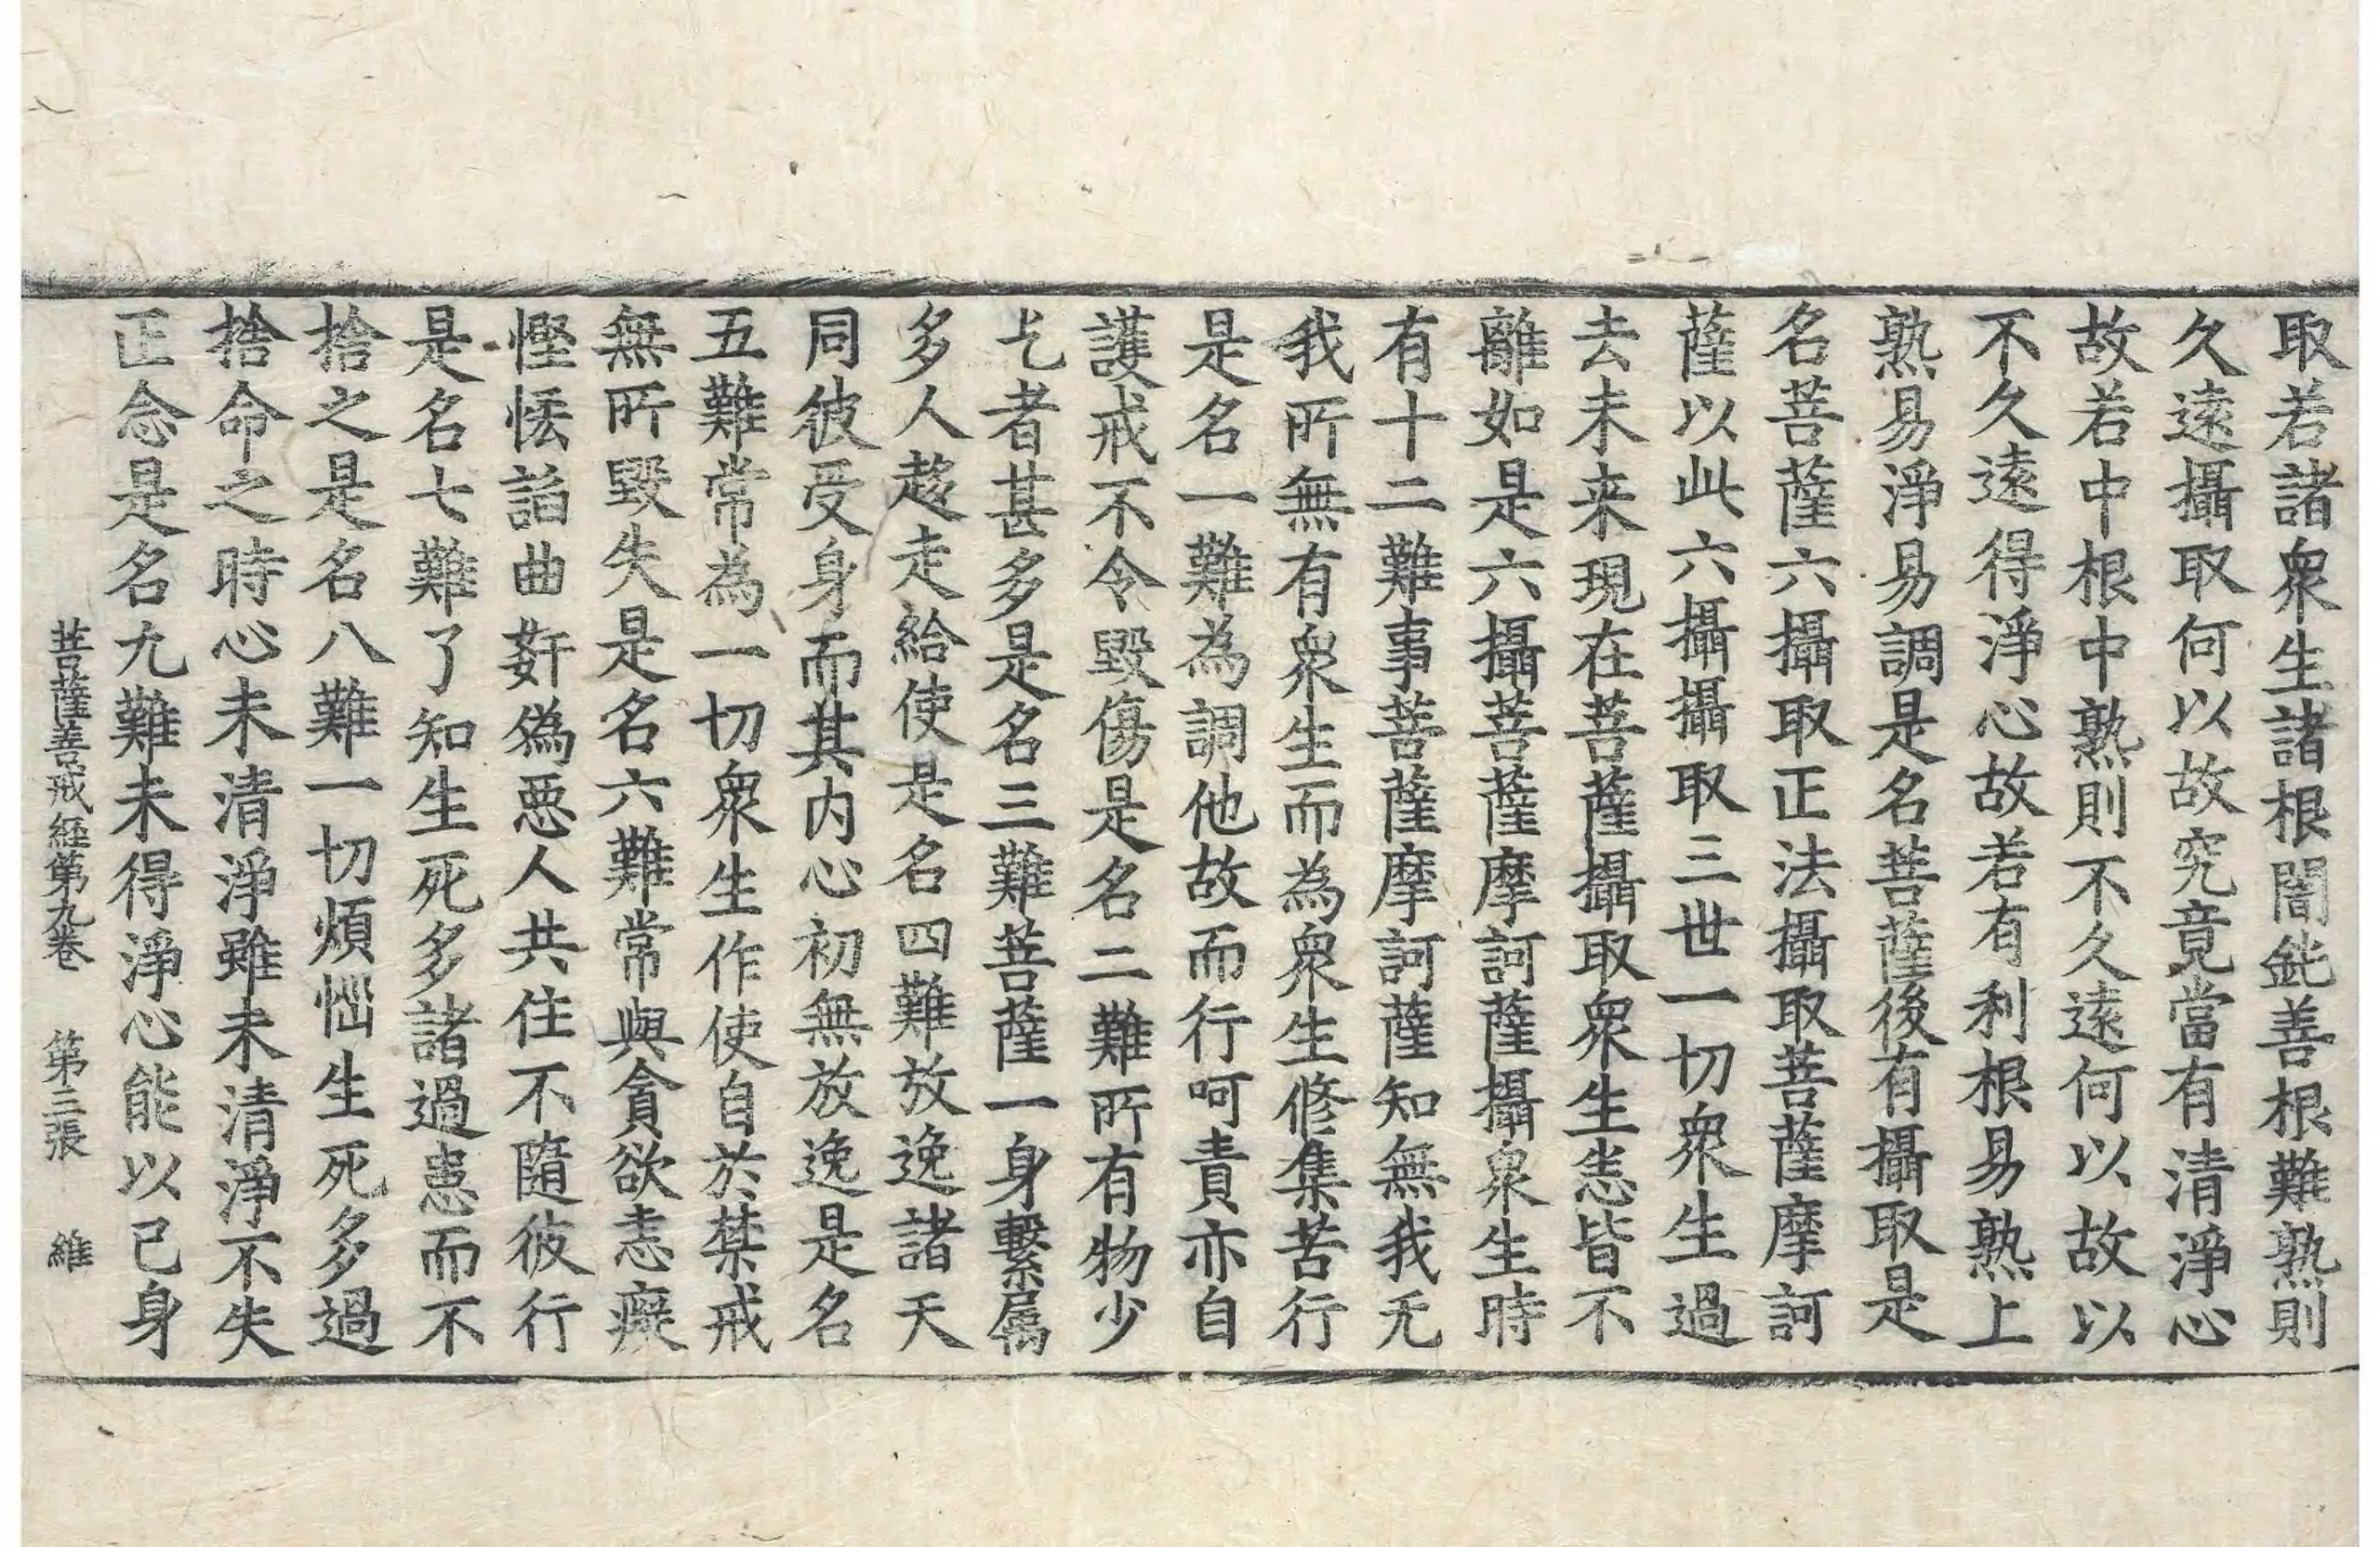 取若諸衆生諸根闇鈍善根難熟則
久遠攝取何以故究竟當有清淨心
故若中根中熟則不久遠何以故以
不久遠得淨心故若有利根易熟上
熟易淨易調是名菩薩後有攝取是
名菩薩六攝取正法攝取菩薩摩訶
薩以此六攝攝取三世一切衆生過
去未来現在菩薩攝取衆生恙皆不
離如是六攝菩薩摩訶薩攝衆生時
有十二難事菩薩摩訶薩知無我无
我所無有衆生而為衆生修集苦行
是名一難為調他故而行呵責亦自
護戒不令毀傷是名二難所有物少
乞者甚多是名三難菩薩一身繫属
多人趍走給使是名四難放逸諸天
同彼受身而其内心初無放逸是名
五難常為一切衆生作使自於禁戒
無所毀失是名六難常與貪欲恚癡
慳悋謟曲姧偽惡人共住不隨彼行
是名七難了知生死多諸過患而不
捨之是名八難一切煩惱生死多過
捨命之時心未清淨雖未清淨不失
正念是名九難未得淨心能以己身
菩薩善戒經第九卷　第三張　維